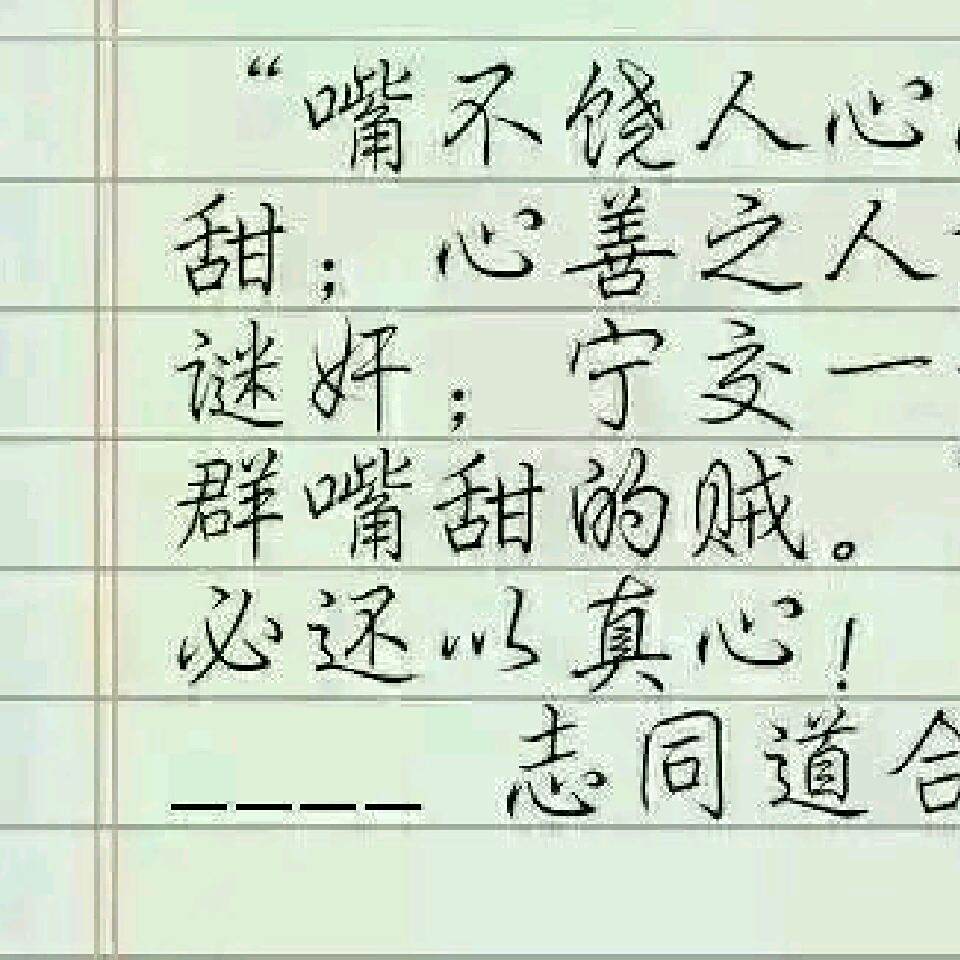 “嘴不饶人心
甜；心善之人
谜奸；宁交一
群嘴甜的贼。
必还以真心！
———— 志同道合